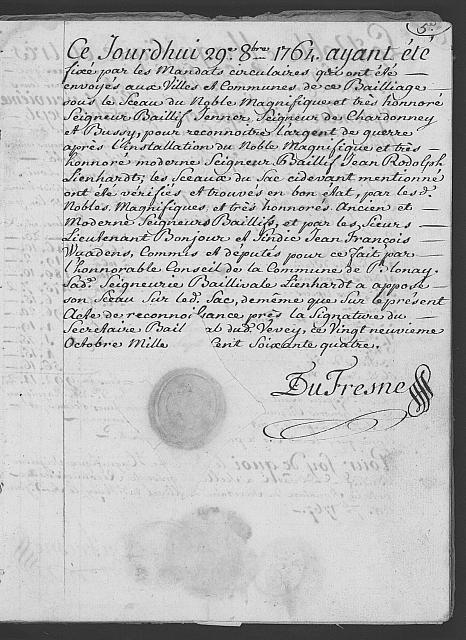 5.e
Ce Jourdhui 29.e 8.bre 1764. ayant été
fixé par les Mandats circulaires qui ont été
envoyés aux Villes et Communes de ce Bailliage
sous le Sceau du Noble Magnifique et très honnoré
Seigneur Baillif Jenner, Seigneur de Chardonney
et Bussy, pour reconnoitre l'argent de guerre
après l'Installation du Noble Magnifique et très
honnoré moderne Seigneur Baillif Jean Rodolph
Lienhardt; les Sceaux du Sac cidevant mentionné
ont été vérifiés et trouvés en bon état, par les d.
Nobles, Magnifiques, et très honnorés Ancien et
Moderne Seigneurs Baillifs, et par les Sieurs
Lieutenant Bonjour et Sindic Jean François
Vuadens, Comm.is et députés pour ce fait par
l'honnorable Conseil de la Commune de Blonay.
Sad.e Seigneurie Baillivale Lienhardt a apposé
son Sceau sur led.t Sac, demême que sur le présent
Acte de reconnoissance près la Signature du
Secretaire Bail al dud.t Vevey, ce Vingt neuvieme
Octobre Mille Cent Soixante quatre.
DuFresne